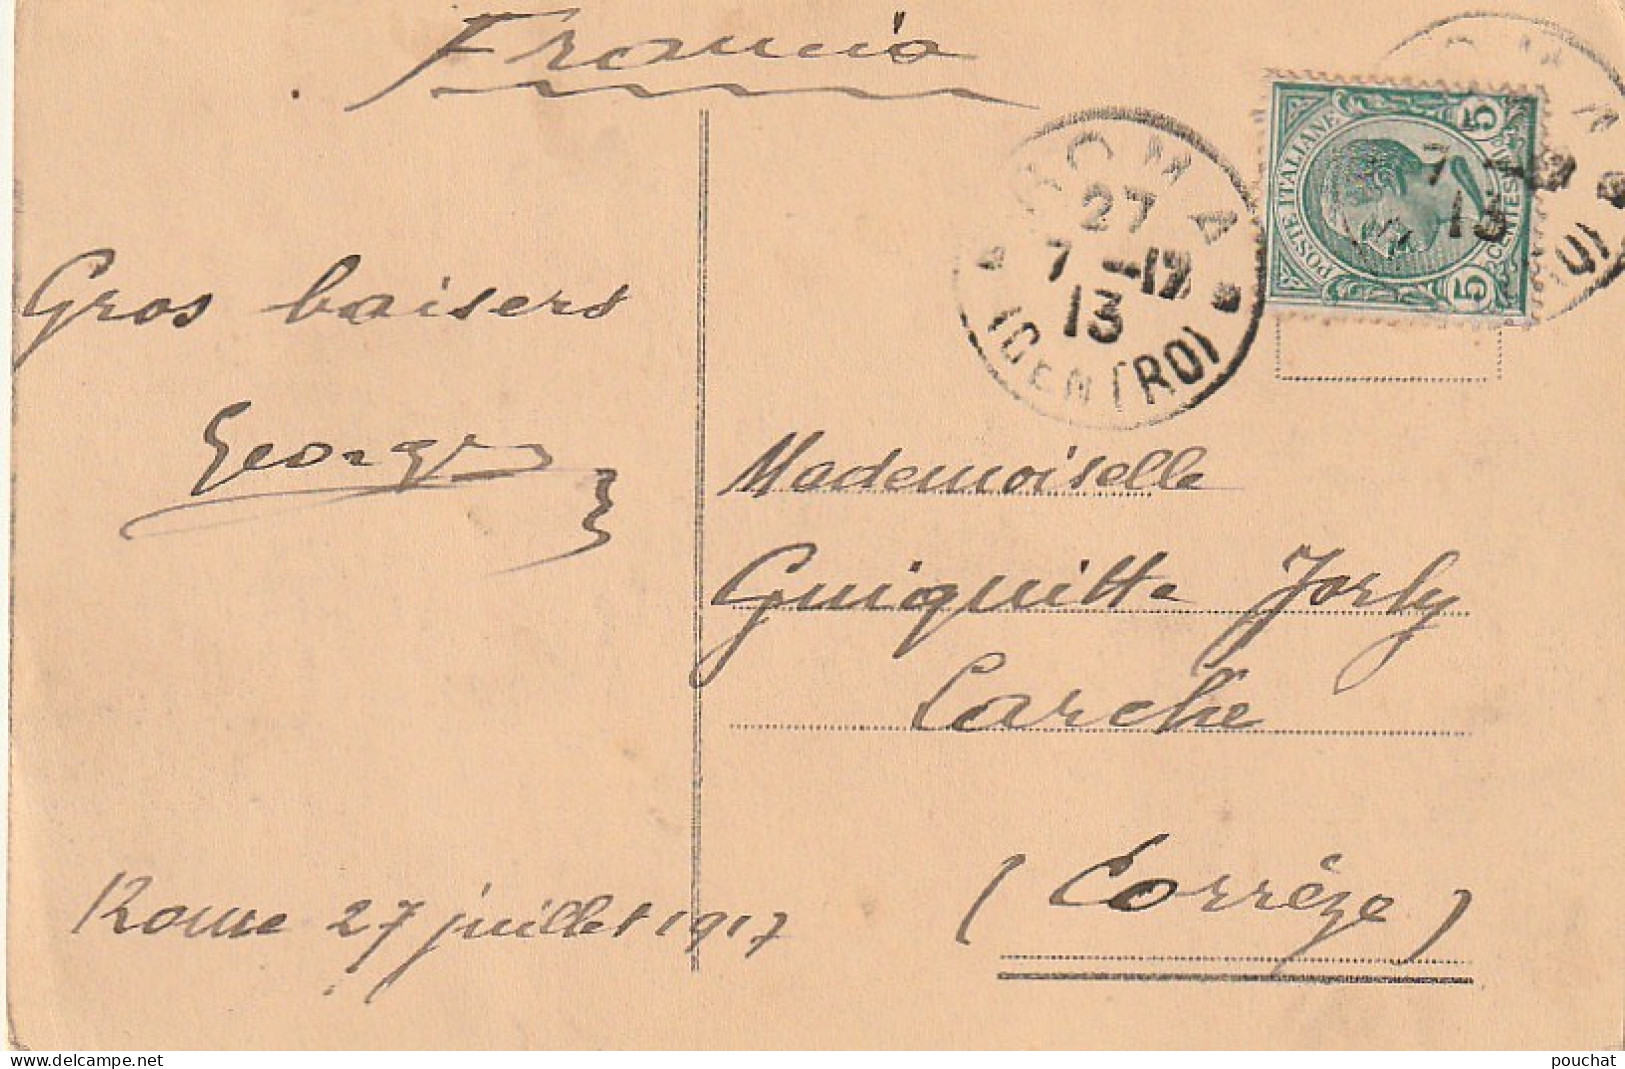 Francia
ROMA
27
7 -12
13
(CENTRO)
POSTE ITALIANE
5 CENTESIMI 5
7
13
Gros baisers
Georges
Mademoiselle
Guiquitte Jorly
Larche
(Corrèze)
Rome 27 juillet 1917
www.delcampe.net
pouchat